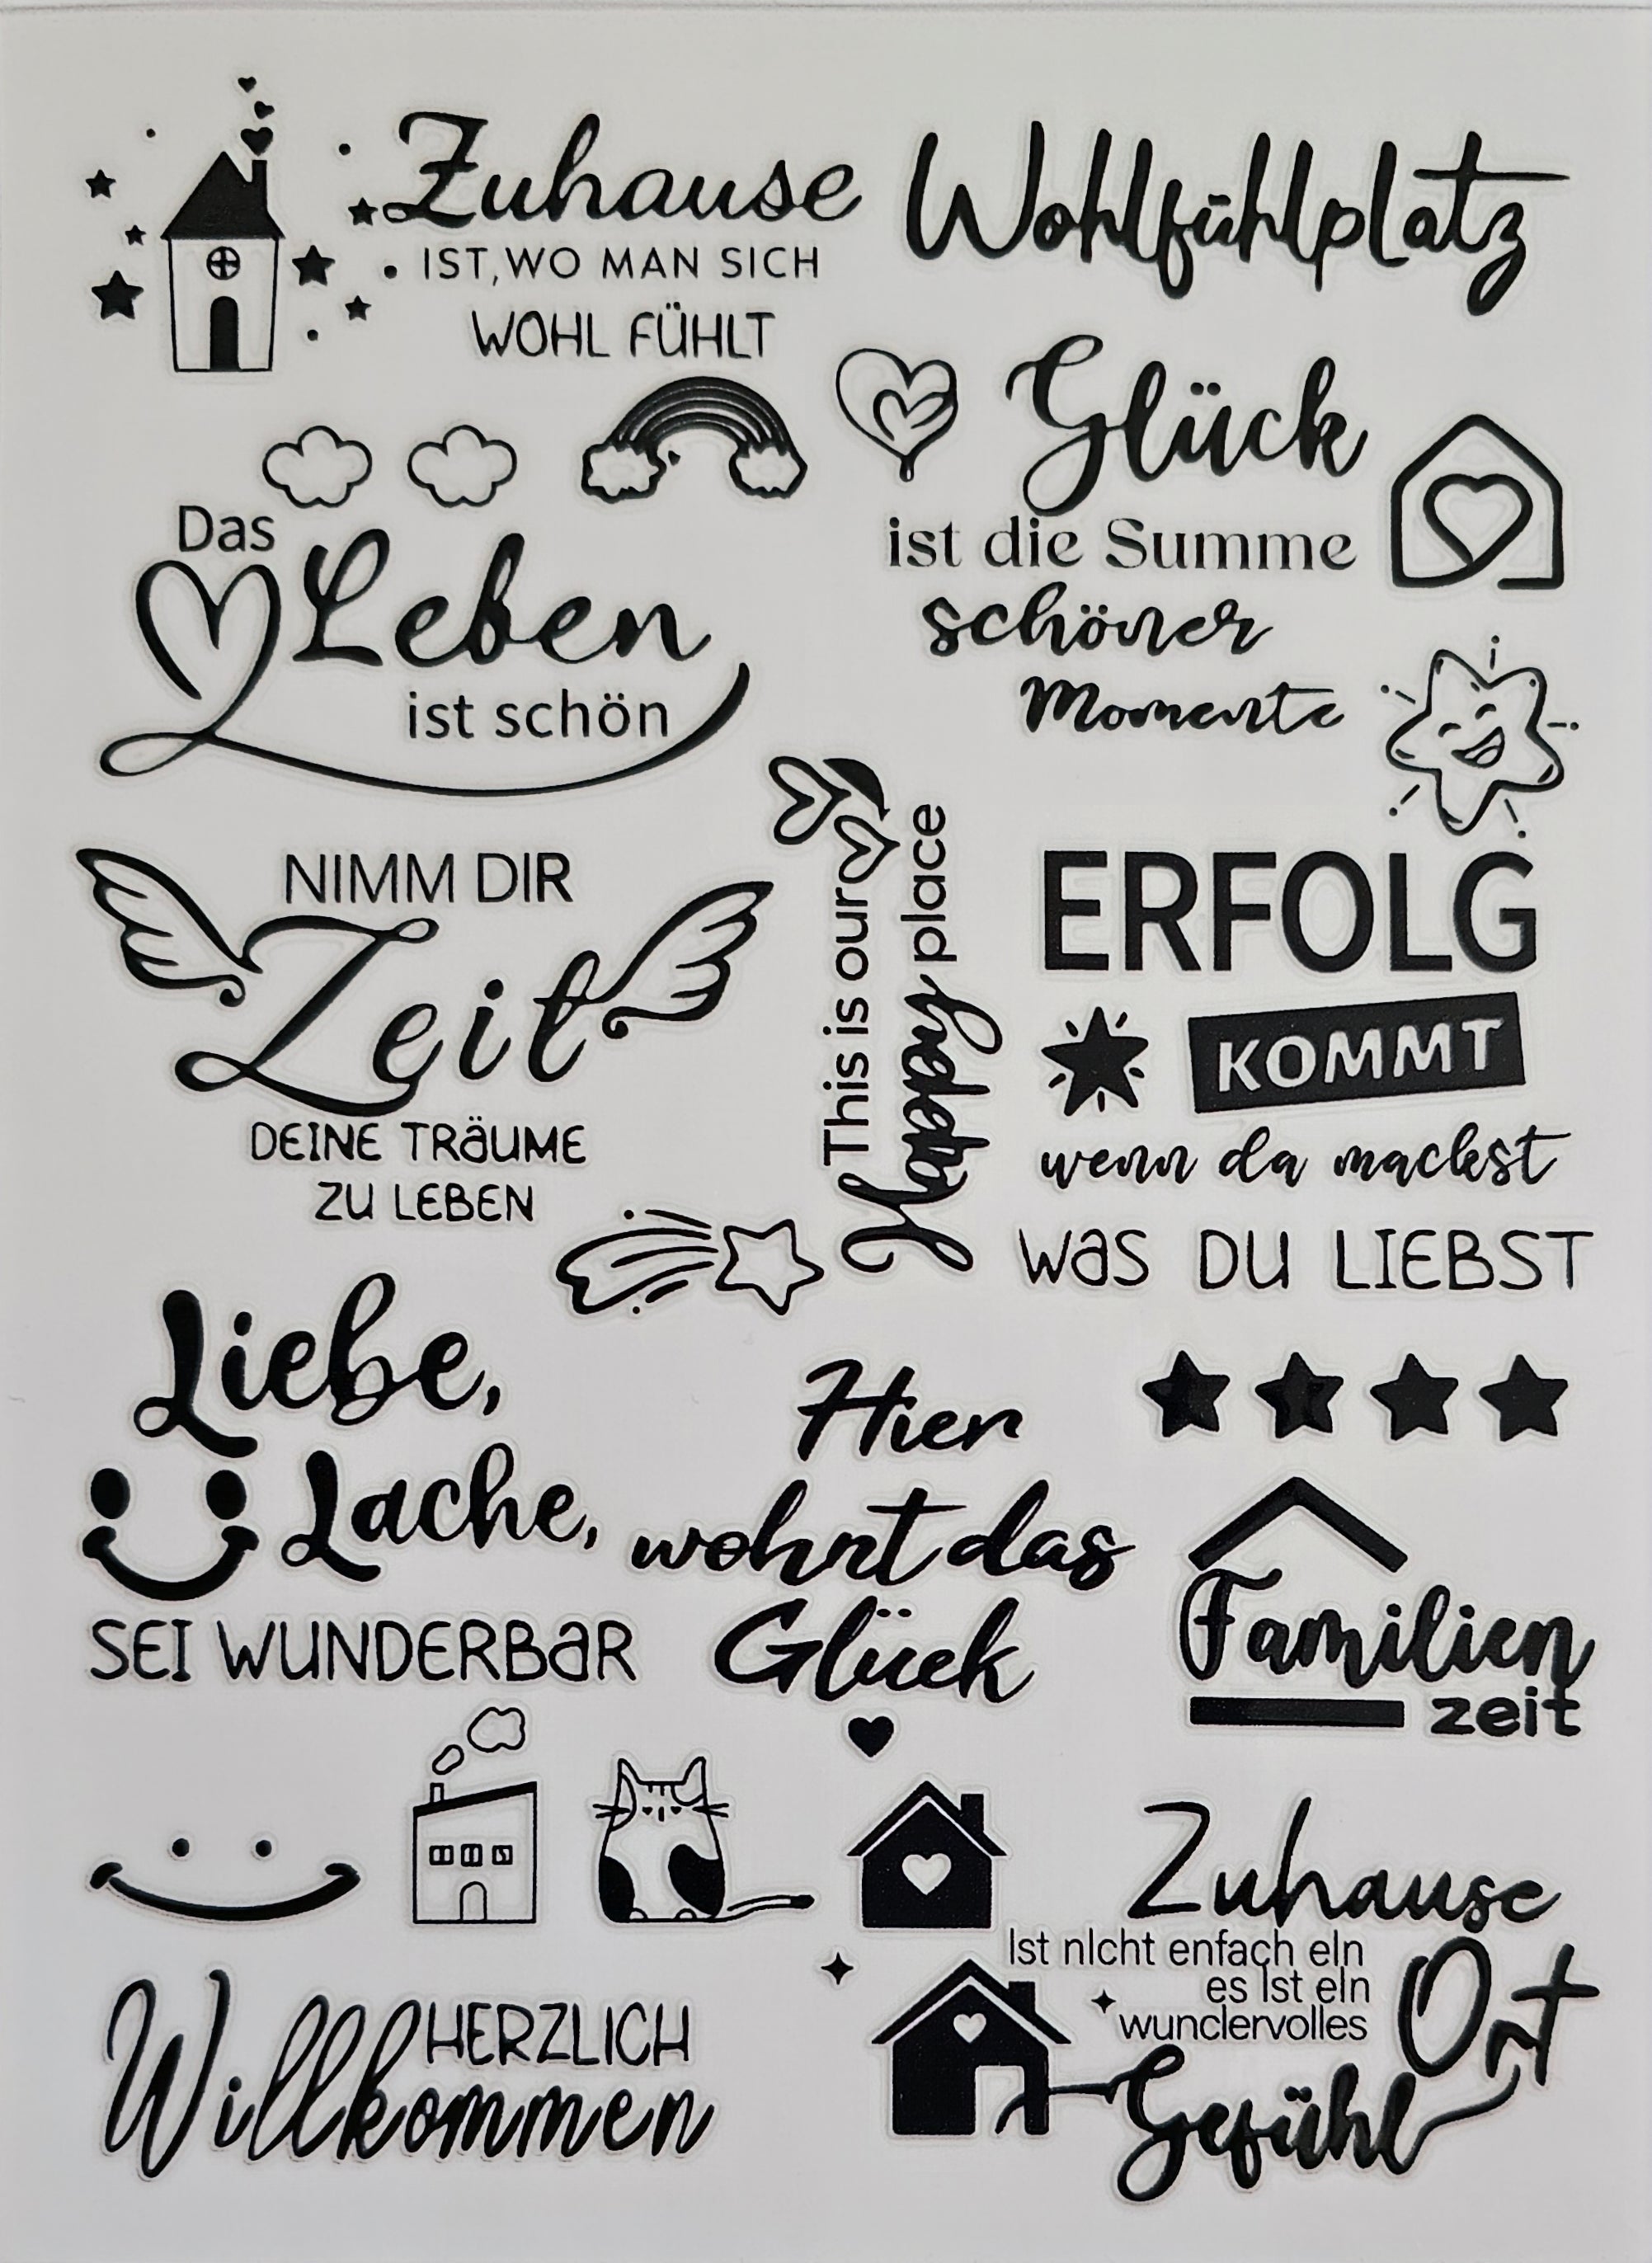 Zuhause
IST, WO MAN SICH
WOHL FÜHLT
Wohlfühlplatz
Glück
ist die Summe
schöner
Momente
Das
Leben
ist schön
NIMM DIR
Zeit
DEINE TRÄUME
ZU LEBEN
This is our
happy place
ERFOLG
KOMMT
wenn da machst
WAS DU LIEBST
Liebe,
Lache,
SEI WUNDERBAR
Hier
wohnt das
Glück
Familien
zeit
Zuhause
Ist nIcht enfach eIn
es Ist eIn
wunclervolles
Ort
Gefühl
HERZLICH
Willkommen